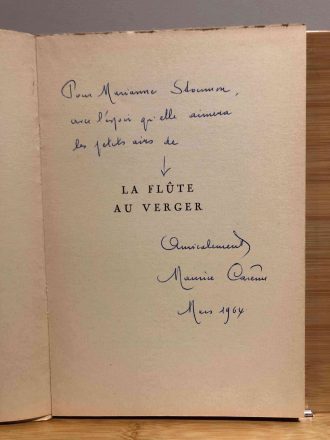 Pour Marianne Stoumon,
avec l'espoir qu'elle aimera
les petits airs de
LA FLÛTE
AU VERGER
Amicalement
Maurice Carême
Mars 1964